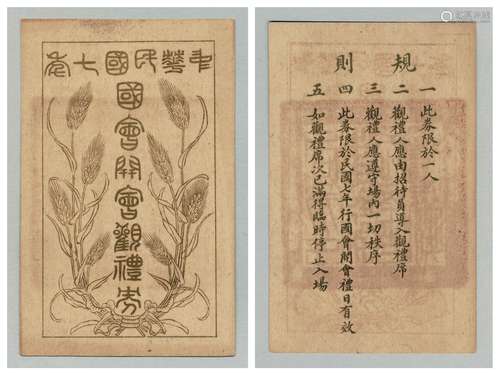 中華民國七年
國會開會觀禮券
規則
一 此券限於一人
二 觀禮人應由招待員導入觀禮席
三 觀禮人應遵守場內一切秩序
四 此券限於民國七年行國會開會禮日有效
五 如觀禮席次已滿得臨時停止入場